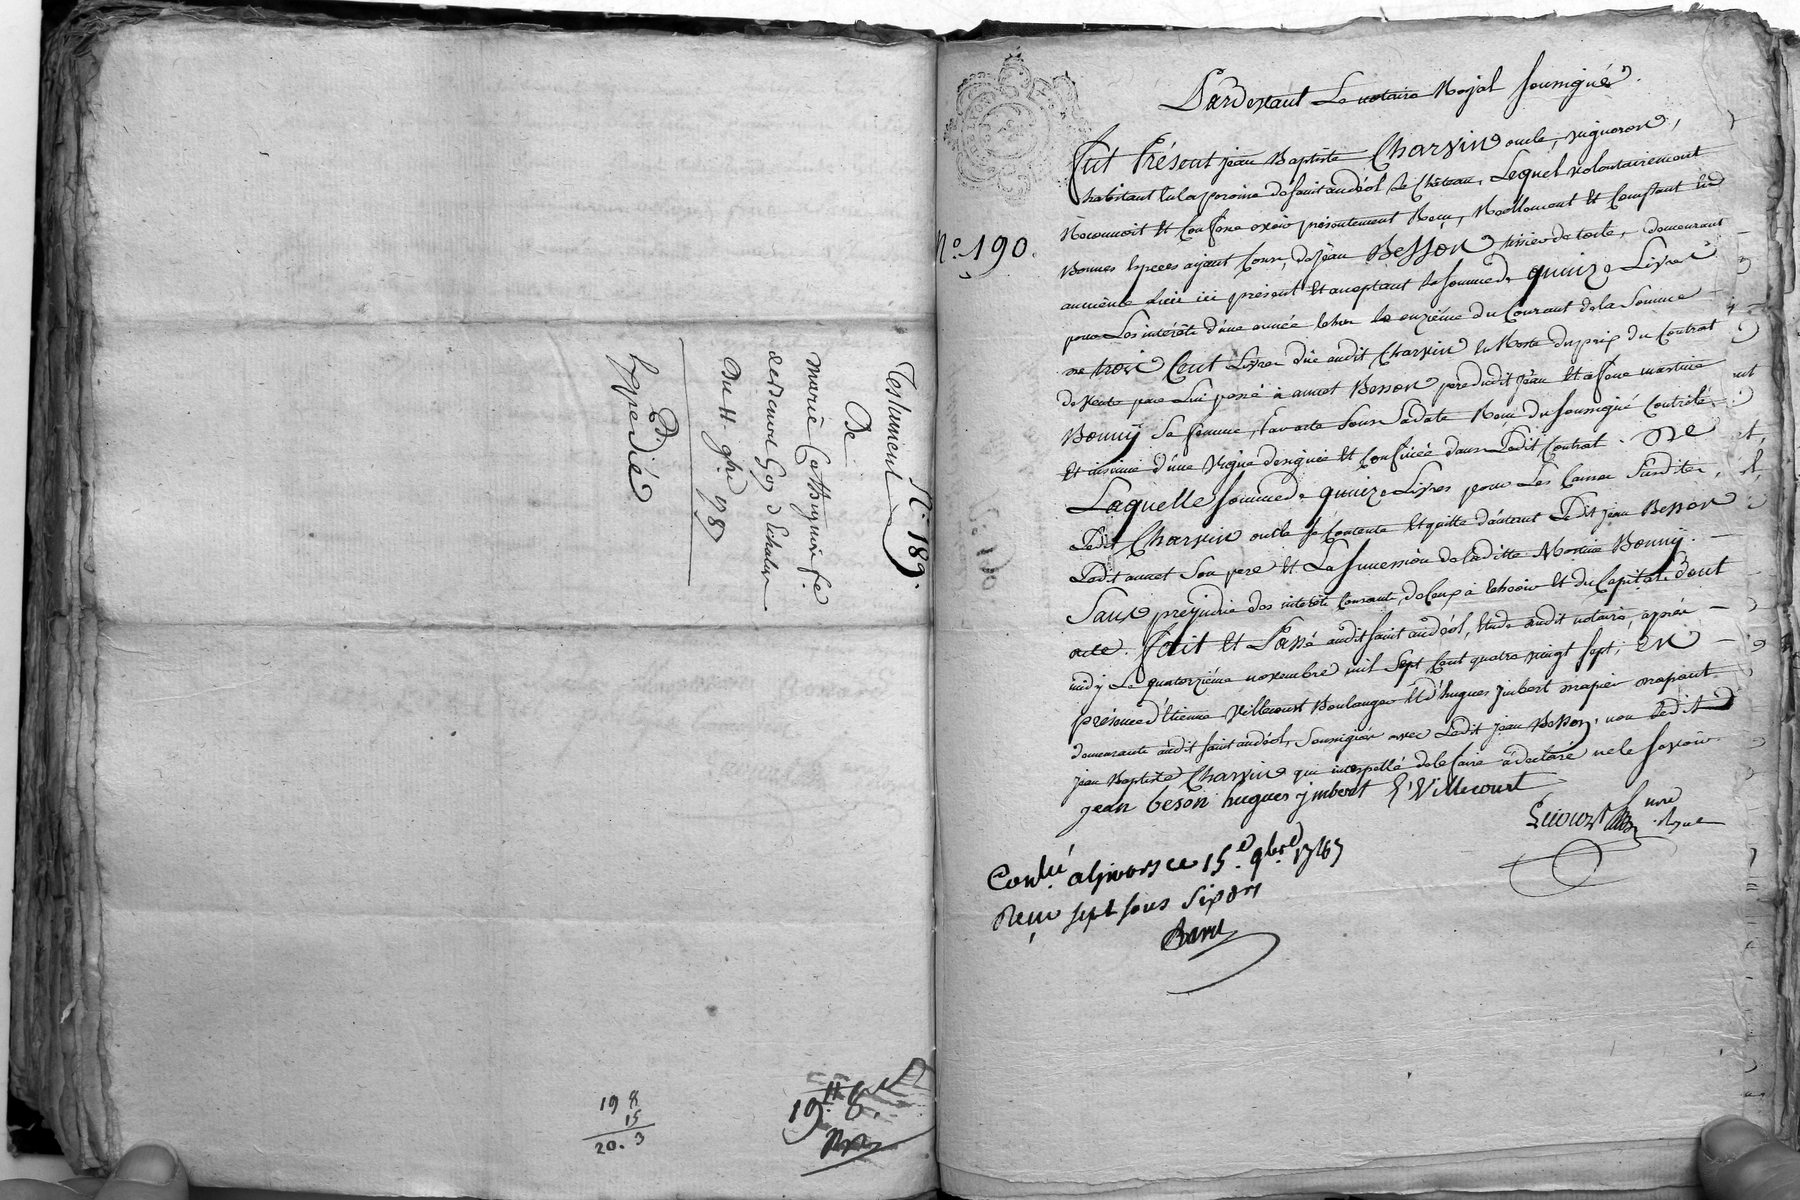 N.° 189.
Testament
De
marie Catherine
Du 11. 9bre 1787
Expedié
19 8
15
20. 3
19 8
N.° 190.
Pardevant Le notaire Royal soussigné.
Fut Présent jean Baptiste Charvin oncle, vigneron,
habitant en la paroisse de saint andéol Le Château, Lequel volontairement
Reconnoit et Confesse avoir présentement Reçu, Réellement et Comptant en
Bonnes Especes ayant Cours, de jean Besson, tissier de toile, demeurant
au même Lieu ici présent et acceptant la somme de quinze Livres
pour Les intérêts d'une année échue le onzième du Courant de la Somme
de trois Cent Livres dûe audit Charvin du Reste du prix du Contrat
de vente par Lui passé à annet Besson pere dudit jean et a feue martine
Bonny sa femme, par acte sous sa date Reçu du soussigné Contrôlé
et insinué d'une vigne designée et Confinée dans Ledit Contrat. De
Laquelle somme de quinze Livres pour Les Causes susdites,
Ledit Charvin oncle se Contente et quitte d'autant Ledit jean Besson
Ledit annet son pere et La succession de laditte Martine Bonny.
Sans prejudice des interêts Courants, de Ceux à echeoir et du Capital dont
acte. Fait et Passé audit saint andéol, Etude dudit notaire, après
midy Le quatorzième novembre mil Sept Cent quatre vingt sept; En
présence d'Etienne Villecourt Boulanger et d'hugues jmbert
demeurants audit saint andéol, Soussignés avec Ledit jean Besson, non Ledit
jean Baptiste Charvin qui interpellé de le faire a declaré ne le savoir.
jean beson hugues jmbert E Villecourt
Contlé a Givors ce 15.e 9bre 1787
Reçu sept sous six drs